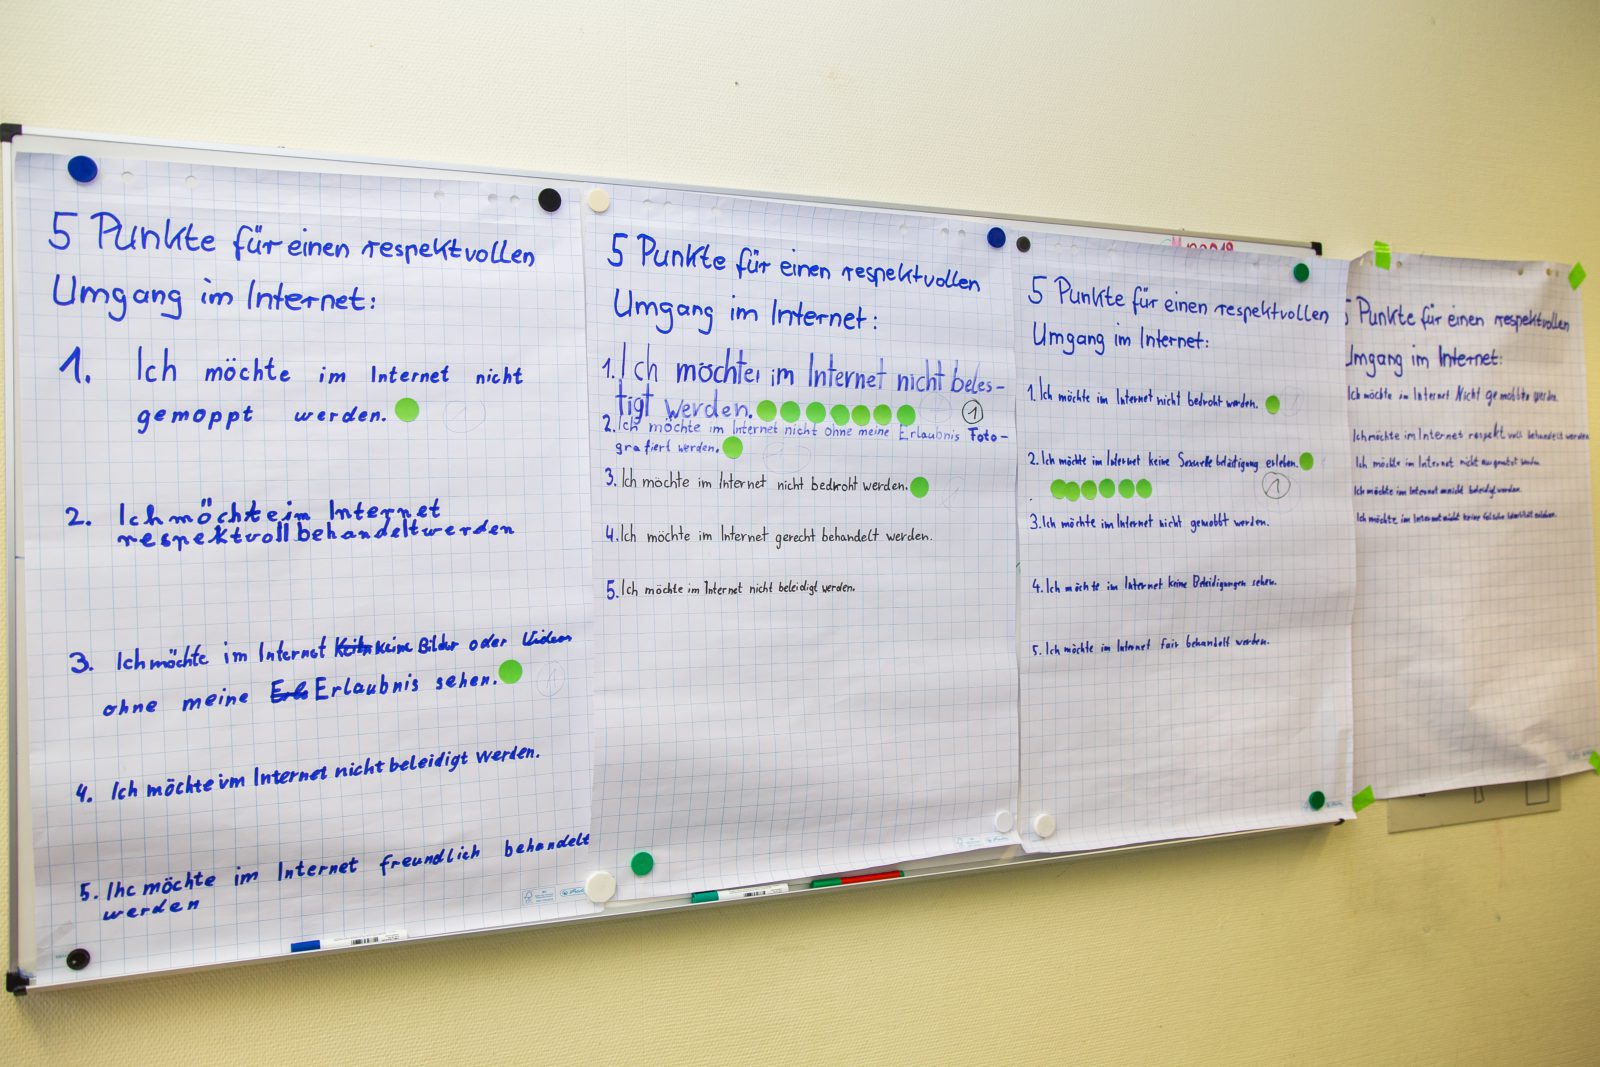 5 Punkte für einen respektvollen
Umgang im Internet:
1. Ich möchte im Internet nicht
gemoppt werden.
2. Ich möchte im Internet
respektvoll behandelt werden
3. Ich möchte im Internet keine Bilder oder Videos
ohne meine Erlaubnis sehen.
4. Ich möchte im Internet nicht beleidigt werden.
5. Ihc möchte im Internet freundlich behandelt
werden
5 Punkte für einen respektvollen
Umgang im Internet:
1. Ich möchte im Internet nicht beles-
tigt werden.
1
2. Ich möchte im Internet nicht ohne meine Erlaubnis Foto-
grafiert werden.
3. Ich möchte im Internet nicht bedroht werden.
4. Ich möchte im Internet gerecht behandelt werden.
5. Ich möchte im Internet nicht beleidigt werden.
5 Punkte für einen respektvollen
Umgang im Internet:
1. Ich möchte im Internet nicht bedroht werden.
2. Ich möchte im Internet keine Sexuelle belästigung erleben.
1
3. Ich möchte im Internet nicht gemobbt werden.
4. Ich möchte im Internet keine Beleidigungen sehen.
5. Ich möchte im Internet fair behandelt werden.
5 Punkte für einen respektvollen
Umgang im Internet:
Ich möchte im Internet Nicht gemobbt werden.
Ich möchte im Internet respektvoll behandelt werden
Ich möchte im Internet nicht ausgenutzt werden
Ich möchte im Internet nicht beleidigt werden.
Ich möchte im Internet nicht keine falsche Identität